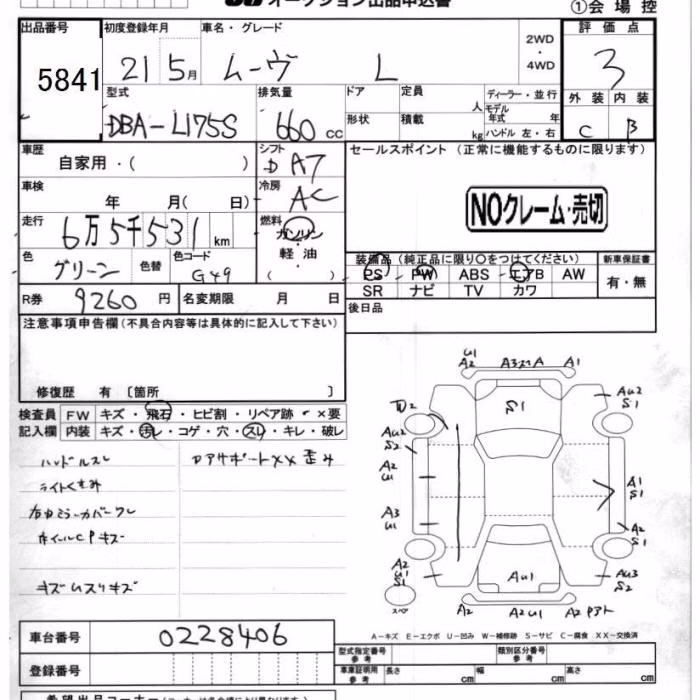 オークション出品申込書
①会場控
出品番号 初度登録年月 車名・グレード 2WD・4WD 評価点
5841 21 5月 ムーヴ L 3
型式 排気量 ドア 定員 人 ディーラー・並行 外装 内装
DBA-L175S 660 cc 形状 積載 kg モデル年式 年 ハンドル 左・右 C B
車歴 シフト セールスポイント (正常に機能するものに限ります)
自家用・( ) D A7
車検 冷房
年 月( 日) AC
NOクレーム・売切
走行 燃料
6万5千531 km ガソリン・軽油
色 色替 色コード ( )
グリーン G49
装備品 (純正品に限り○をつけてください) 新車保証書
PS PW ABS エアB AW 有・無
SR ナビ TV カワ
R券 9260 円 名変期限 月 日
後日品
注意事項申告欄(不具合内容等は具体的に記入して下さい)
修復歴 有〔箇所 〕
検査員 FW キズ・飛石・ヒビ割・リペア跡・×要
記入欄 内装 キズ・汚レ・コゲ・穴・スレ・キレ・破レ
ハンドルスレ
コアサポートXX歪み
ライトくもり
右ドアミラーカバーワレ
ホイールCPキズ
キズムスリキズ
U1
A2 A3 A A1
S1
A U2
S1
U2
AU2
S2
A2
U1
A3
U1
A1
S1
A2
S1
A2
U1
S1
AU1
AU3
S2
スペア
A2 A2U1 A2
A-キズ E-エクボ U-凹み W-補修跡 S-サビ C-腐食 XX-交換済
車台番号 0228406
型式指定番号 参考 類別区分番号 参考
登録番号
車庫証明用 参考 長さ cm 幅 cm 高さ cm
希望出品コーナー